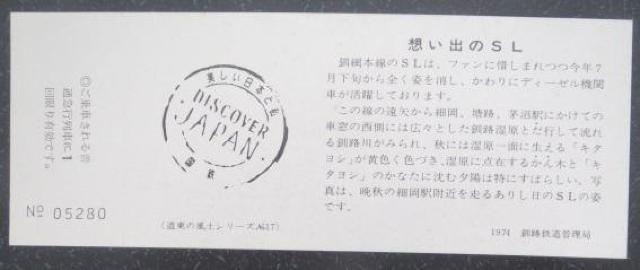 想い出のSL
釧網本線のSLは、ファンに惜しまれつつ今年7
月下旬から全く姿を消し、かわりにディーゼル機関
車が活躍しております。
この線の遠矢から細岡、塘路、茅沼駅にかけての
車窓の西側には広々とした釧路湿原とだ行して流れ
る釧路川がみられ、秋には湿原一面に生える「キタ
ヨシ」が黄色く色づき、湿原に点在するかん木と「キ
タヨシ」のかなたに沈む夕陽は特にすばらしい。写
真は、晩秋の細岡駅附近を走るありし日のSLの姿
です。
1974 釧路鉄道管理局
美しい日本と私
DISCOVER
JAPAN
国鉄
(道東の風土シリーズ№17)
◎ご乗車される普
通急行列車に1
回限り有効です。
№ 05280